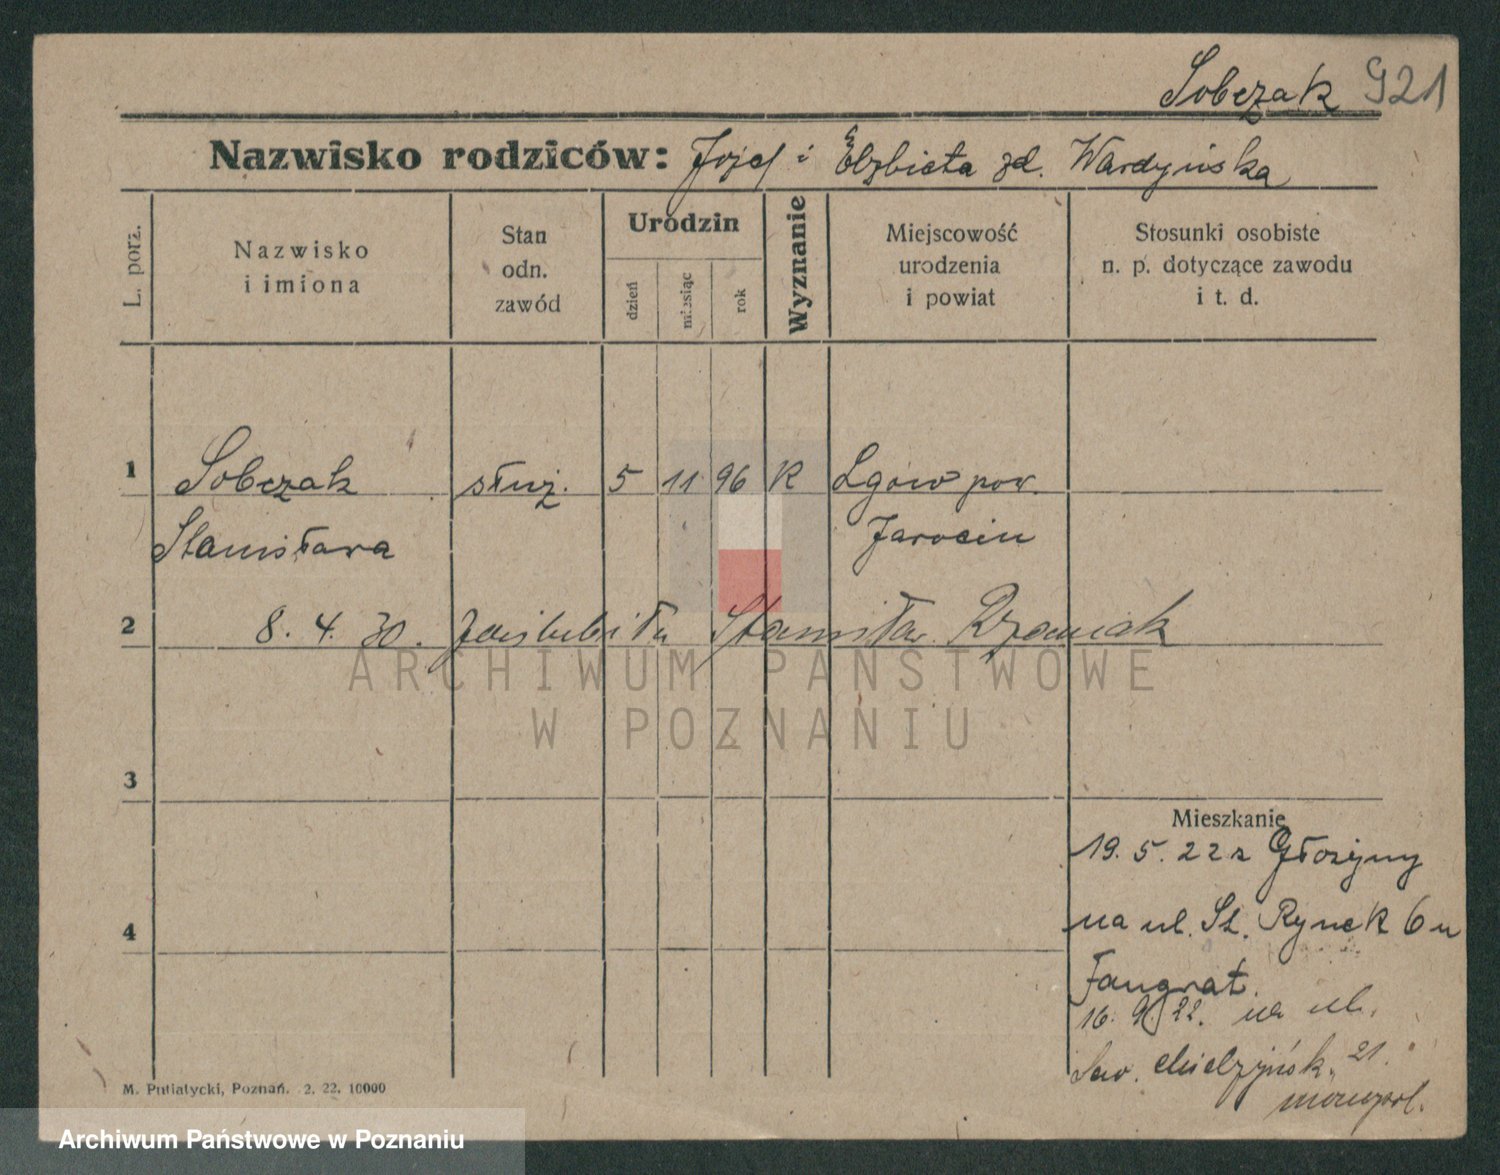 Sobczak 921
Nazwisko rodziców: Józef i Elżbieta zd. Wardyńska
L. porz.
Nazwisko
i imiona
Stan
odn.
zawód
Urodzin
dzień
miesiąc
rok
Wyznanie
Miejscowość
urodzenia
i powiat
Stosunki osobiste
n. p. dotyczące zawodu
i t. d.
1 Sobczak służ. 5 11 96 K Lgów pow.
Stanisława Jarocin
2 8.4.30. zaślubiła Stanisław Rzeniak
ARCHIWUM PAŃSTWOWE
W POZNANIU
3
Mieszkanie
19.5.22 z
na ul. St. Rynek 6 u
4
16.9.22. na ul.
21
M. Putiatycki, Poznań. 2. 22. 10000
Archiwum Państwowe w Poznaniu